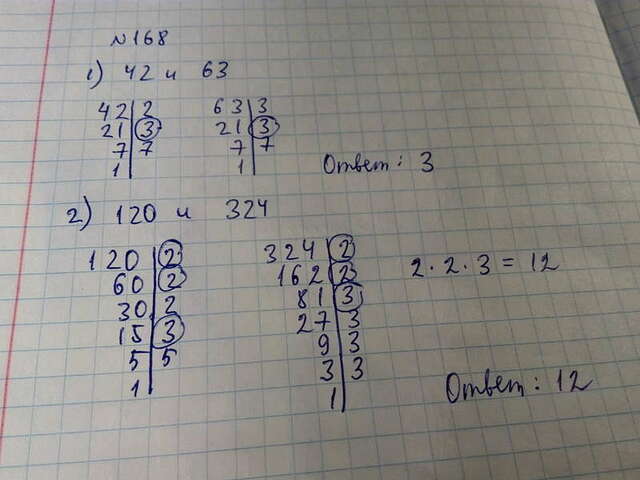 №168
1) 42 и 63
42 2 63 3
21 3 21 3
7 7 7 7
1 1
Ответ: 3
2) 120 и 324
120 2 324 2
60 2 162 2
30 2 81 3
15 3 27 3
5 5 9 3
1 3 3
1
2·2·3 = 12
Ответ: 12